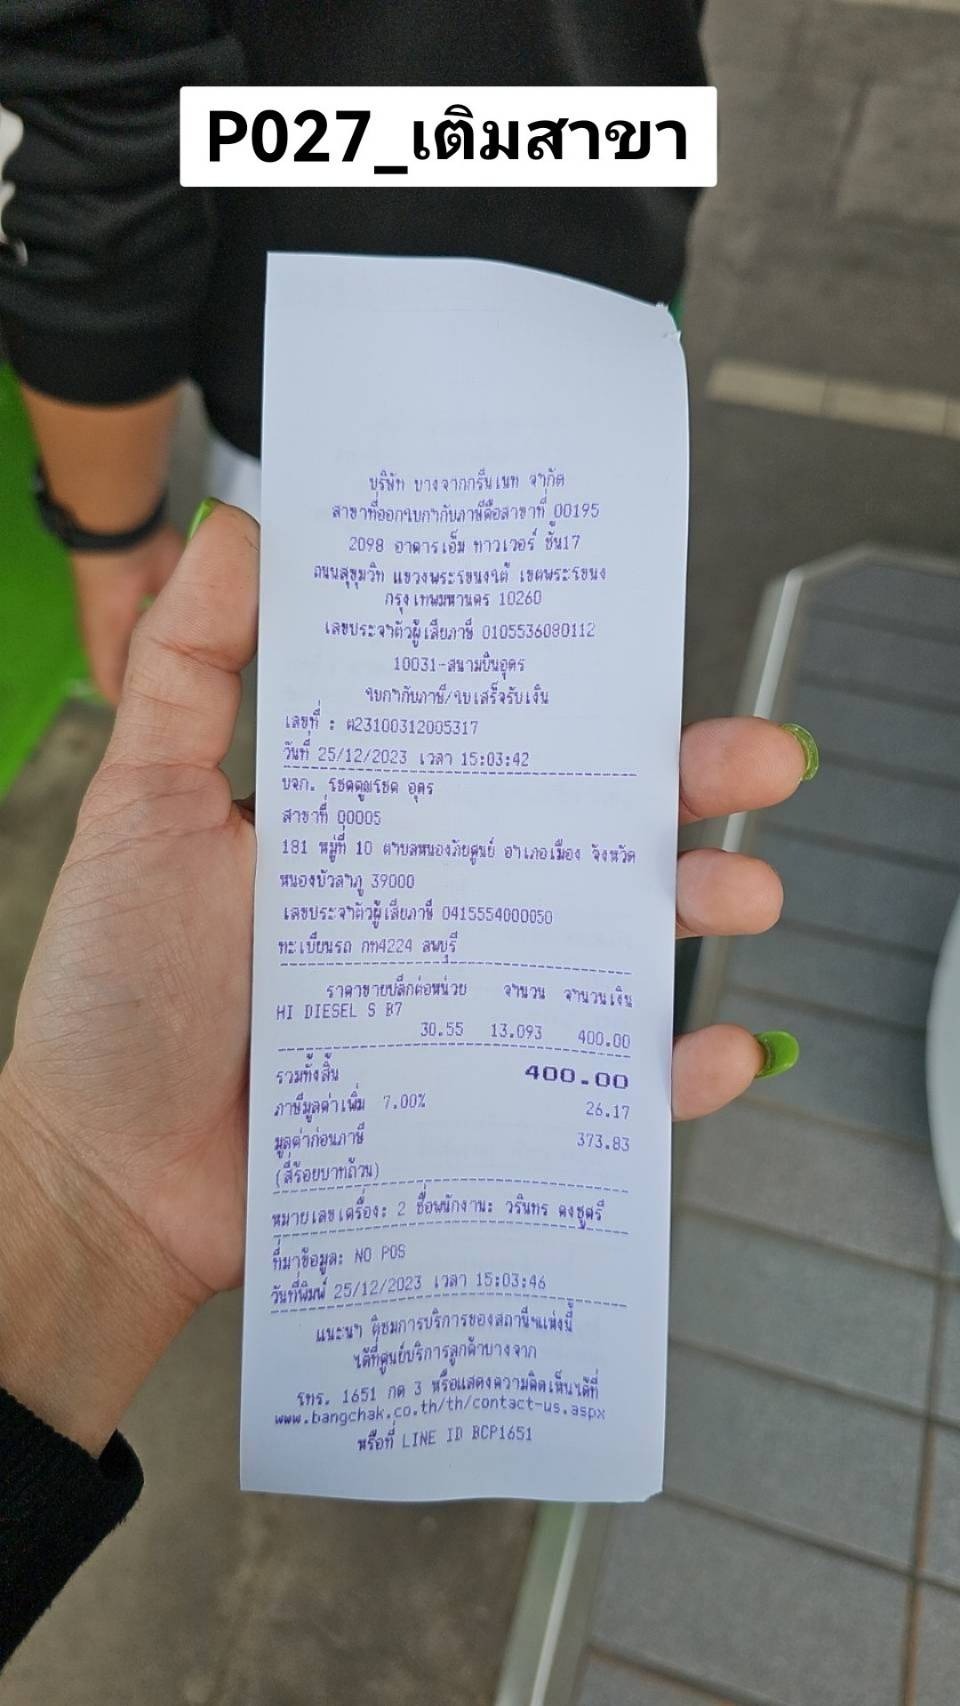 P027_เติมสาขา
บริษัท บางจากกรีนเนท จำกัด
สาขาที่ออกใบกำกับภาษีคือสาขาที่ 00195
2098 อาคารเอ็ม ทาวเวอร์ ชั้น17
ถนนสุขุมวิท แขวงพระโขนงใต้ เขตพระโขนง
กรุงเทพมหานคร 10260
เลขประจำตัวผู้เสียภาษี 0105536080112
10031-สนามบินอุดร
ใบกำกับภาษี/ใบเสร็จรับเงิน
เลขที่ : ต23100312005317
วันที่ 25/12/2023 เวลา 15:03:42
บจก. โชคคูณโชค อุดร
สาขาที่ 00005
181 หมู่ที่ 10 ตำบลหนองภัยศูนย์ อำเภอเมือง จังหวัด
หนองบัวลำภู 39000
เลขประจำตัวผู้เสียภาษี 0415554000050
ทะเบียนรถ กท4224 ลพบุรี
ราคาขายปลีกต่อหน่วย จำนวน จำนวนเงิน
HI DIESEL S B7
30.55 13.093 400.00
รวมทั้งสิ้น 400.00
ภาษีมูลค่าเพิ่ม 7.00% 26.17
มูลค่าก่อนภาษี 373.83
(สี่ร้อยบาทถ้วน)
หมายเลขเครื่อง: 2 ชื่อพนักงาน: วรินทร คงชูศรี
ที่มาข้อมูล: NO POS
วันที่พิมพ์ 25/12/2023 เวลา 15:03:46
แนะนำ ติชมการบริการของสถานีฯแห่งนี้
ได้ที่ศูนย์บริการลูกค้าบางจาก
โทร. 1651 กด 3 หรือแสดงความคิดเห็นได้ที่
www.bangchak.co.th/th/contact-us.aspx
หรือที่ LINE ID BCP1651